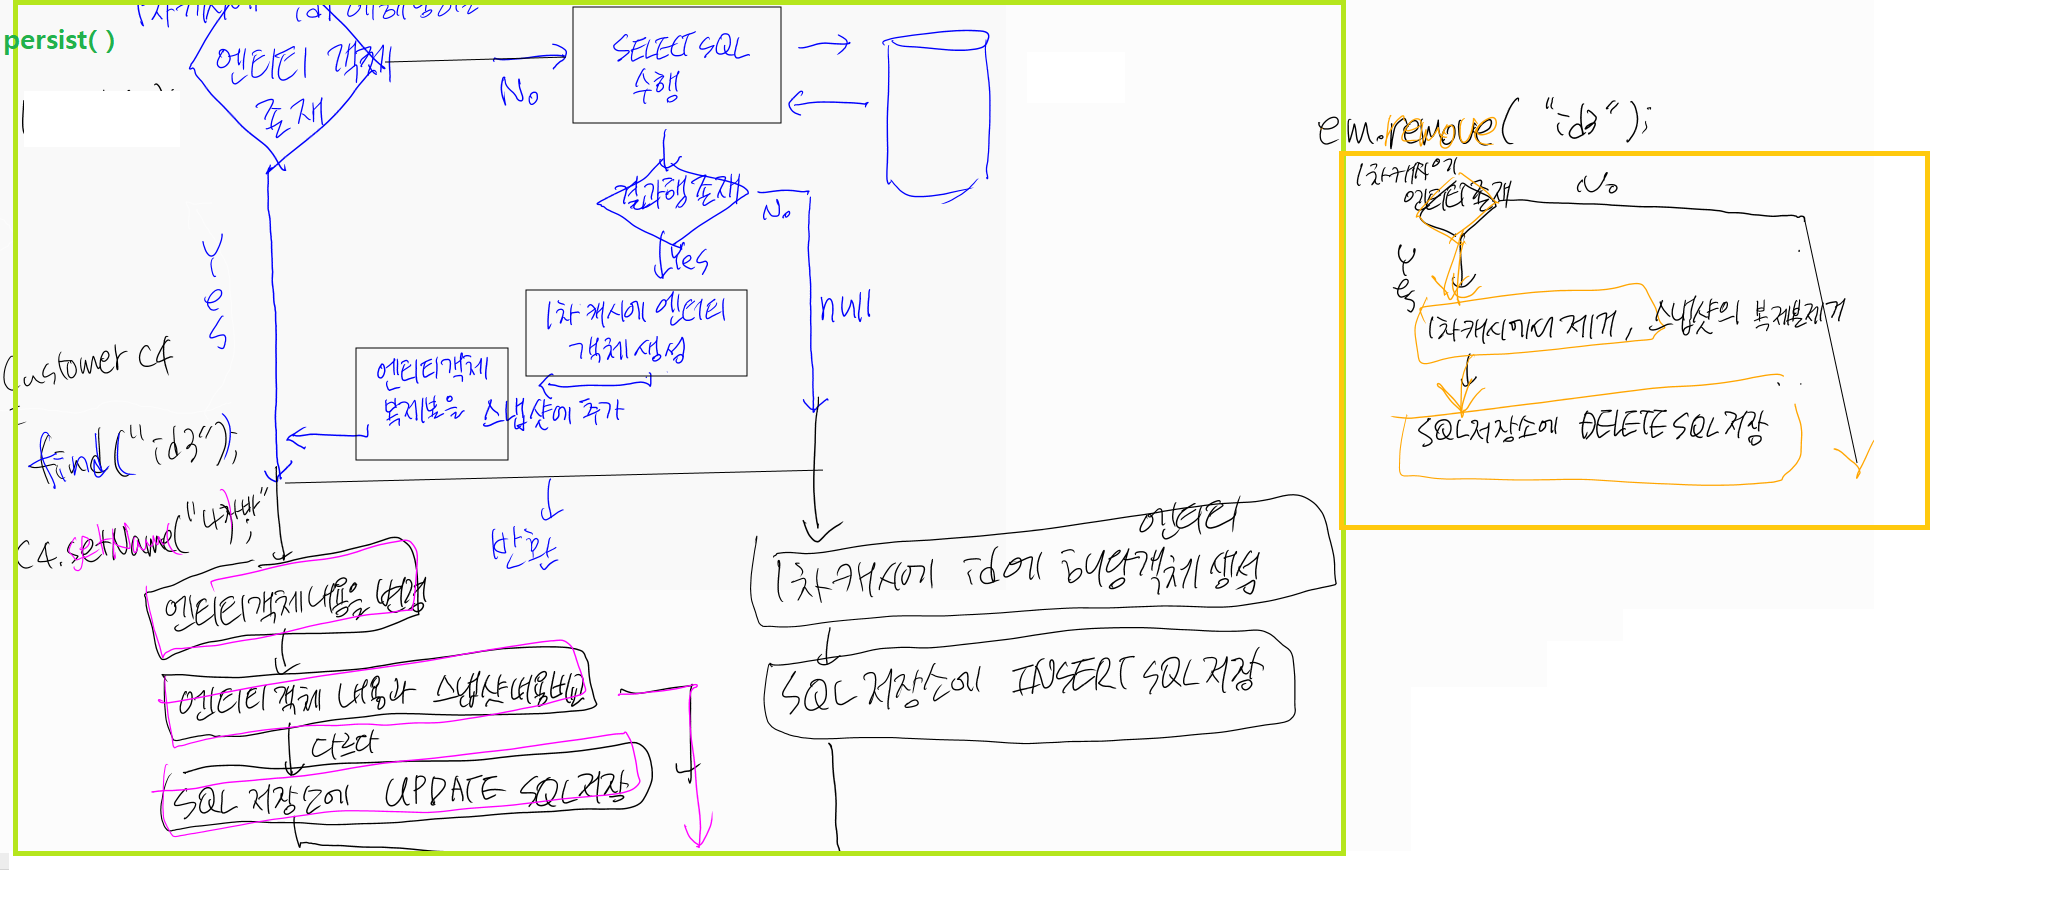 persist( )
엔티티 객체
존재
No
SELECT SQL
수행
결과행 존재
No
Yes
Yes
null
1차 캐시에 엔티티
객체 생성
엔티티객체
복제본을 스냅샷에 추가
Customer C4
find("id3");
C4.setName("나가방");
반환
엔티티객체내용을 변경
엔티티객체 내용과 스냅샷내용비교
다르다
SQL 저장소에 UPDATE SQL저장
엔티티
1차캐시에 id에 해당객체생성
SQL 저장소에 INSERT SQL저장
em.remove( "id3");
엔티티존재
No
Yes
1차캐시에서 제거, 스냅샷의 복제본제거
SQL저장소에 DELETE SQL저장